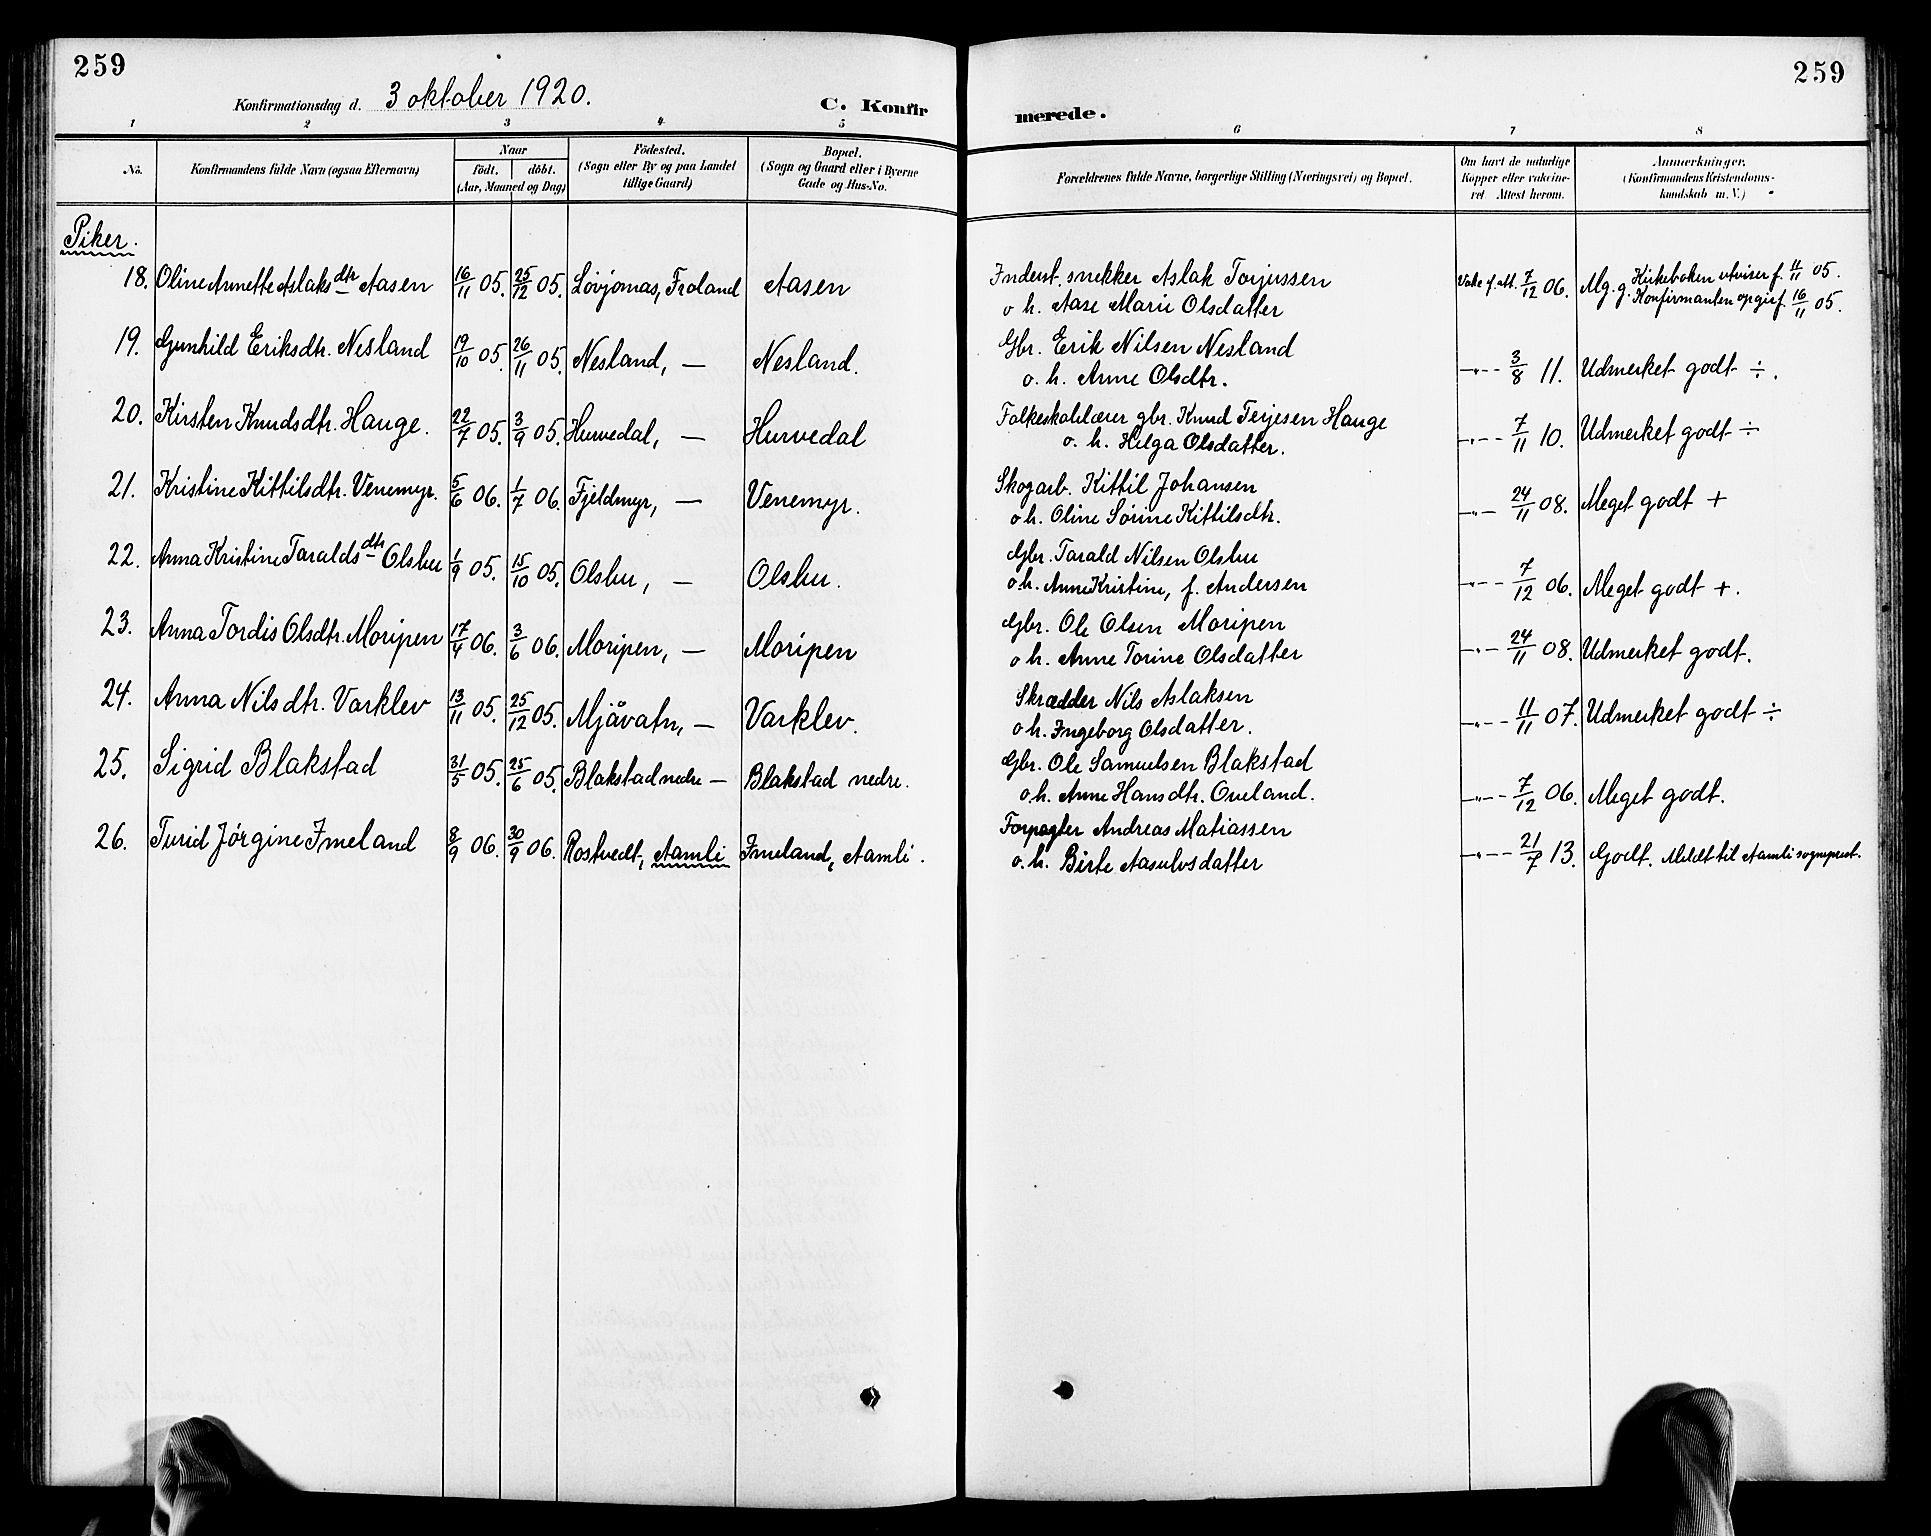 259
259
Konfirmationsdag d. 3 oktober 1920.
C. Konfir
merede.
1 2 3 4 5 6 7 8
No.
Konfirmandens fulde Navn (ogsaa Efternavn)
Naar
födt. döbt.
(Aar, Maaned og Dag)
Födested.
(Sogn eller By og paa Landet
tillige Gaard)
Bopæl.
(Sogn og Gaard eller i Byerne
Gade og Hus-No.
Forældrenes fulde Navne, borgerlige Stilling (Næringsvei) og Bopæl.
Om havt de naturlige
Kopper eller vakcine-
ret Attest herom.
Anmerkninger.
(Konfirmandens Kristendoms-
kundskab m. V.)
Piker.
18. Oline Annette Aslaksdtr Aasen 16/11 05. 25/12 05. Lövjomas, Froland Aasen
Indent. snekker Aslak Torjussen
o h. Aase Marie Olsdatter
7/12 06. Mg. g. Kirkeboken utviser f. 11/11 05.
Konfirmanten opgir f. 16/11 05.
19. Gunhild Eriksdtr. Nesland 19/10 05. 26/11 05. Nesland, — Nesland.
Gbr. Erik Nilsen Nesland
o. h. Anne Olsdtr.
—"-- 3/8 11. Udmerket godt ÷.
20. Kirsten Knudsdtr. Hauge. 22/7 05. 3/9 05. Hurvedal, — Hurvedal
Folkeskolelærer gbr. Knud Terjesen Hauge
o. h. Helga Olsdatter.
—"-- 7/11 10. Udmerket godt ÷
21. Kristine Kittilsdtr. Venemyr. 5/6 06. 1/7 06. Fjeldmyr, — Venemyr.
Skogarb. Kittil Johansen
o h. Oline Sörine Kittilsdtr.
—"— 24/11 08. Meget godt +
22. Anna Kristine Taraldsdtr Olsbu 1/9 05. 15/10 05. Olsbu, — Olsbu.
Gbr. Tarald Nilsen Olsbu
o.h. Anne Kristine, f. Andersen
—"-- 7/12 06. Meget godt +.
23. Anna Tordis Olsdtr. Moripen 17/4 06. 3/6 06. Moripen, — Moripen
Gbr. Ole Olsen Moripen
o h. Anne Torine Olsdatter
—"-- 24/11 08. Udmerket godt.
24. Anna Nilsdtr. Varklev 13/11 05. 25/12 05. Mjåvatn, — Varklev.
Skrædder Nils Aslaksen
o h. Ingeborg Olsdatter.
—"-- 11/11 07. Udmerket godt ÷
25. Sigrid Blakstad 31/5 05. 25/6 05. Blakstad nedre — Blakstad nedre.
Gbr. Ole Samuelsen Blakstad
o.h. Anne Hansdtr. Oveland.
—"-- 7/12 06. Meget godt.
26. Turid Jörgine Imeland 8/9 06. 30/9 06. Rostvedt, Aamli Imeland, Aamli.
Forpagter Andreas Matiassen
o. h. Birte Aasulvsdatter
—"-- 21/7 13. Godt. Meldt til Aamli sogneprest.